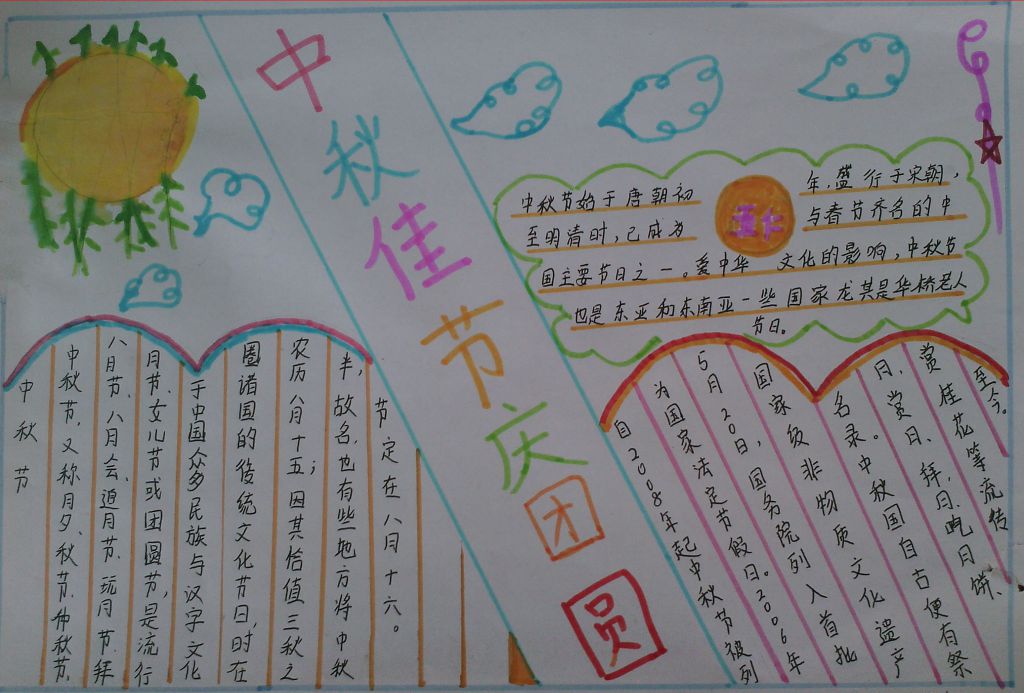 中秋佳节庆团圆
中秋节
中秋节,又称月夕、秋节、仲秋节、
八月节、八月会、追月节、玩月节、拜
月节、女儿节或团圆节,是流行
于中国众多民族与汉字文化
圈诸国的传统文化节日,时在
农历八月十五;因其恰值三秋之
半,故名,也有些地方将中秋
节定在八月十六。
中秋节始于唐朝初年,盛行于宋朝,
至明清时,已成为与春节齐名的中
国主要节日之一。爱中华文化的影响,中秋节
也是东亚和东南亚一些国家尤其是华桥老人
节日。
自2008年起中秋节被列
为国家法定节假日。2006年
5月20日,国务院列入首批
国家级非物质文化遗产
名录。中秋国自古便有祭
月、赏月、拜月、吃月饼、
赏桂花等流传
至今。